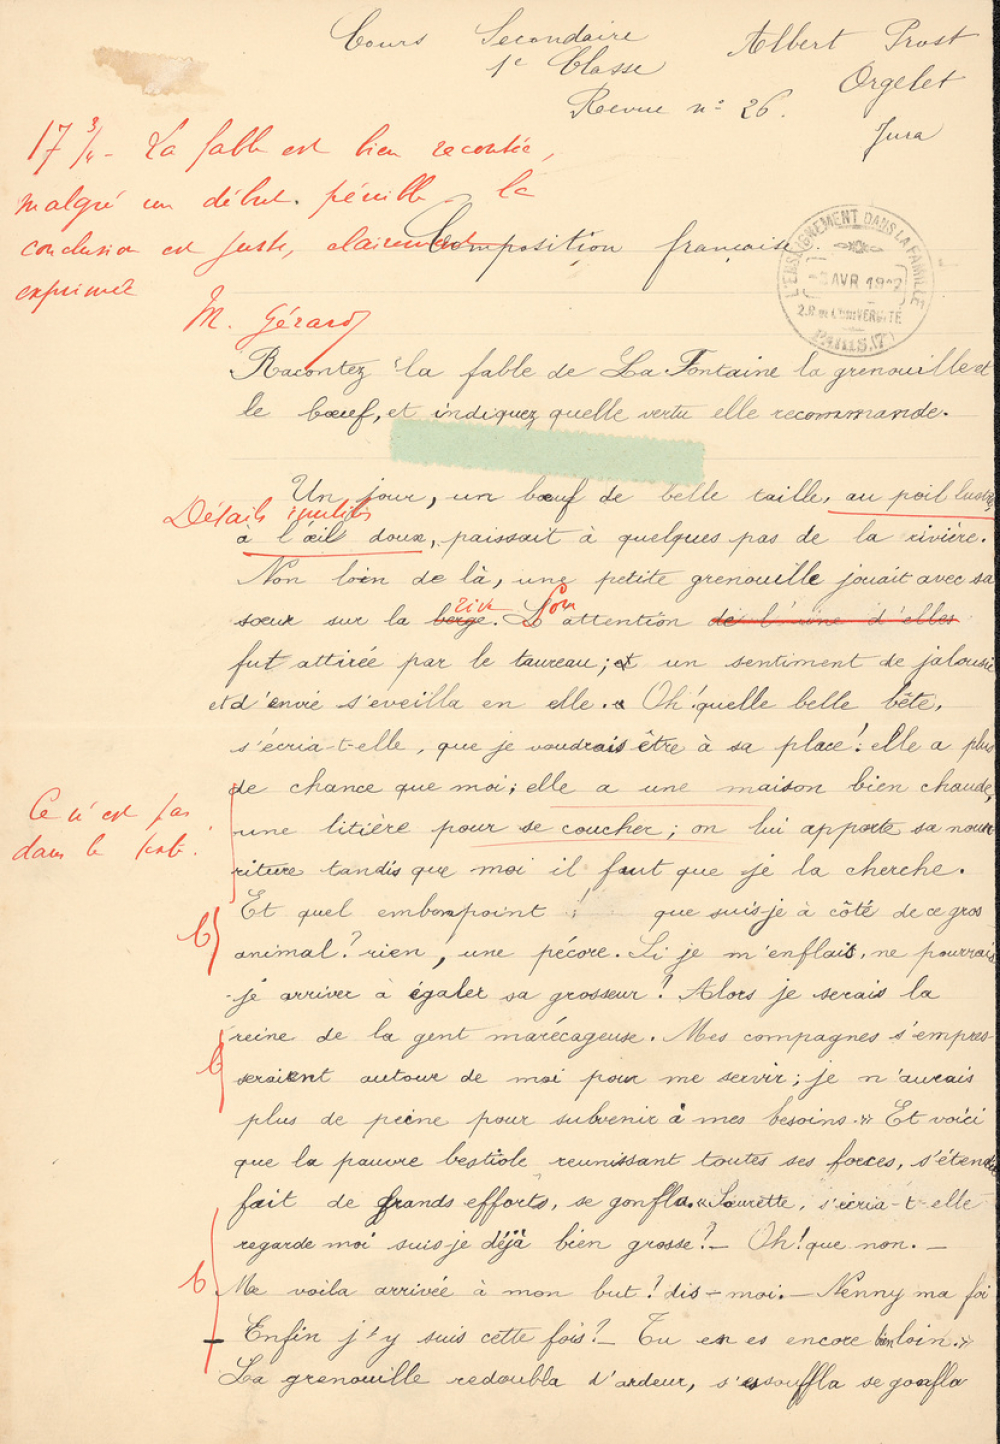 Cours Secondaire
1e Classe
Revue n° 26.
Albert Prost
Orgelet
Jura
17 3/4 - La fable est bien racontée,
malgré un début pénible la
conclusion est juste, clairement
exprimée
M. Gérard
Composition française.
L'ENSEIGNEMENT DANS LA FAMILLE
AVR
PARIS
Racontez la fable de La Fontaine la grenouille et
le bœuf, et indiquez quelle vertu elle recommande.
Détails inutiles
Un jour, un bœuf de belle taille, au poil lustré,
à l'œil doux, paissait à quelques pas de la rivière.
Non loin de là, une petite grenouille jouait avec sa
rive Son
sœur sur la berge. L'attention de l'une d'elles
fut attirée par le taureau; et un sentiment de jalousie
et d'envie s'eveilla en elle. « Oh! quelle belle bête,
s'écria-t-elle, que je voudrais être à sa place! elle a plus
de chance que moi; elle a une maison bien chaude,
Ce n'est pas
dans le texte.
une litière pour se coucher; on lui apporte sa nour
riture tandis que moi il faut que je la cherche.
Et quel embonpoint ! que suis-je à côté de ce gros
b
animal? rien, une pécore. Si je m'enflais, ne pourrais
je arriver à égaler sa grosseur! Alors je serais la
reine de la gent marécageuse. Mes compagnes s'empres
b
seraient autour de moi pour me servir; je n'aurais
plus de peine pour subvenir à mes besoins.» Et voici
que la pauvre bestiole reunissant toutes ses forces, s'étend
fait de grands efforts, se gonfla. « Sœurette, s'écria-t-elle
regarde moi suis-je déjà bien grosse? — Oh! que non. —
b
Me voila arrivée à mon but! dis-moi. — Nenny ma foi
— Enfin j'y suis cette fois? — Tu en es encore bien loin.»
La grenouille redoubla d'ardeur, s'essouffla se gonfla